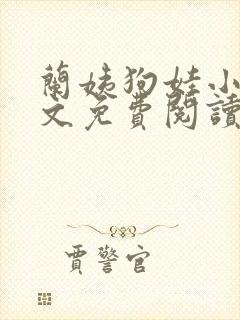 蘭姨狗娃小
文免費閱讀
賈警官